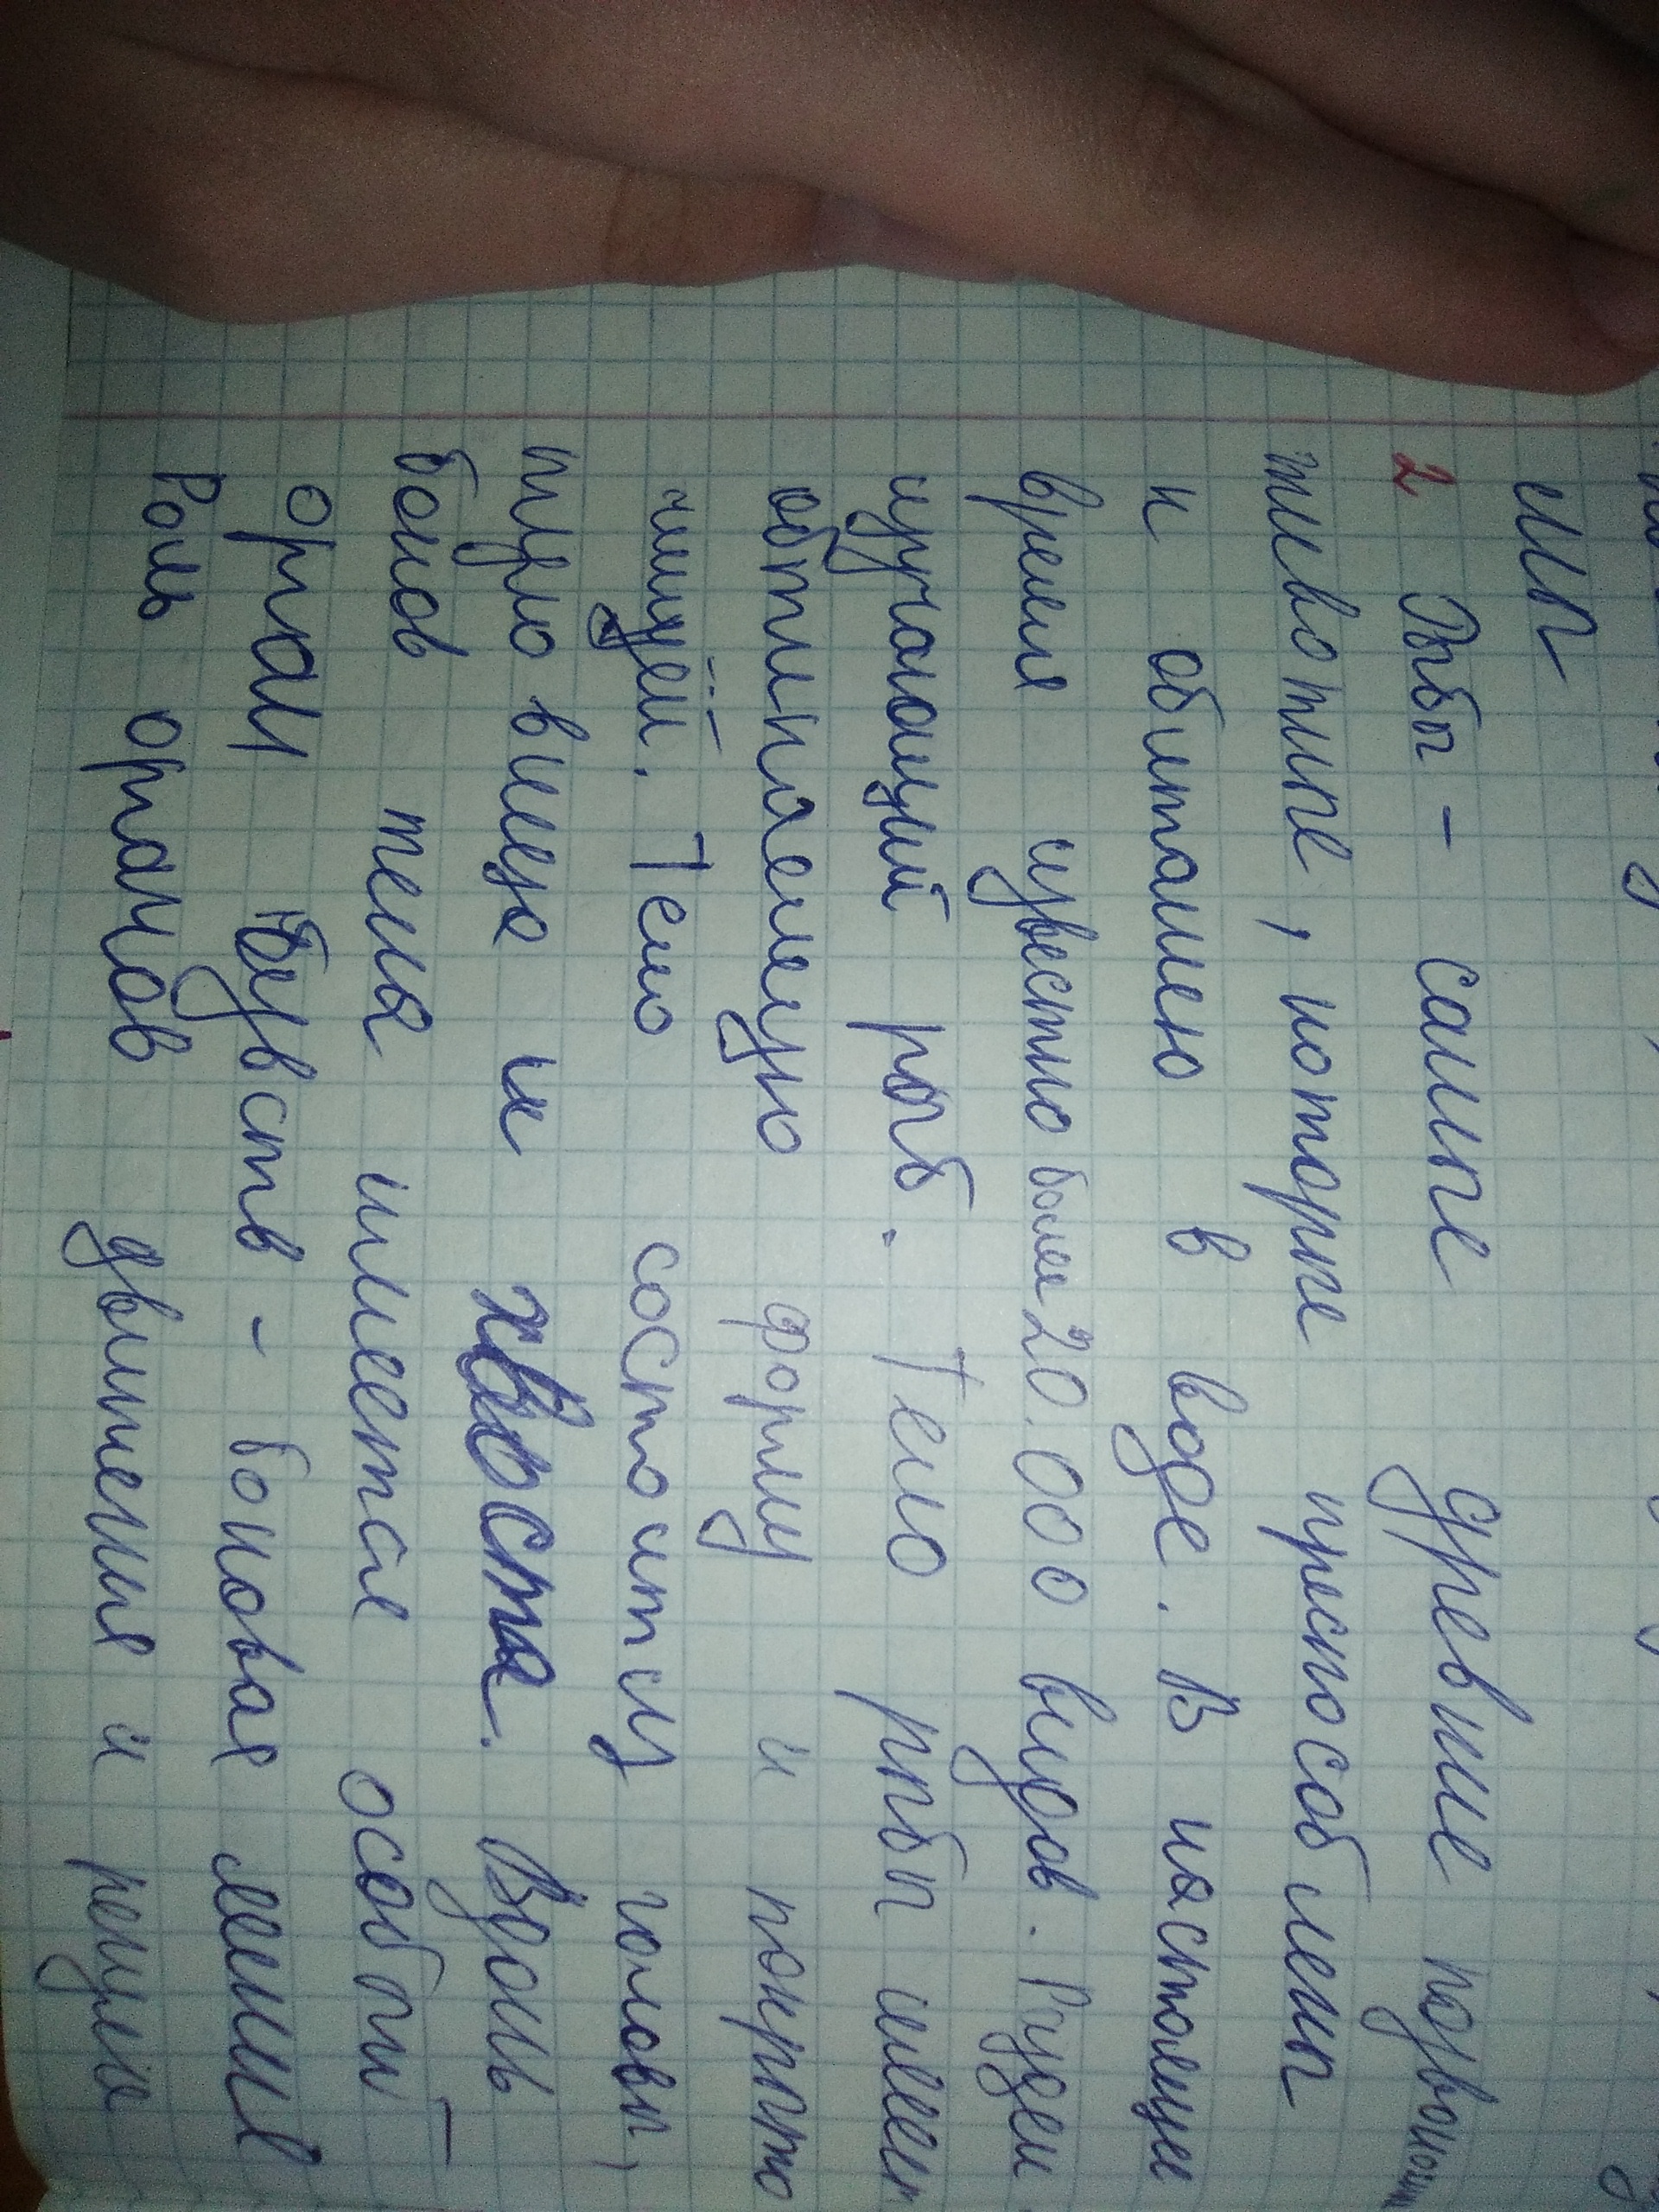 ып
2 Рыбы - самые древние позвоночн
животные, которые приспособлены
к обитанию в воде. В настоящее
время известно более 20.000 видов. Раздел
изучающий рыб. Тело рыбы имеет
обтикаемую форму и покрыто
чешуёй. Тело состоит из головы,
туловища и хвоста. Вдоль
боков тела имеется особый
орган чувств - боковая линия
Роль органов движения и